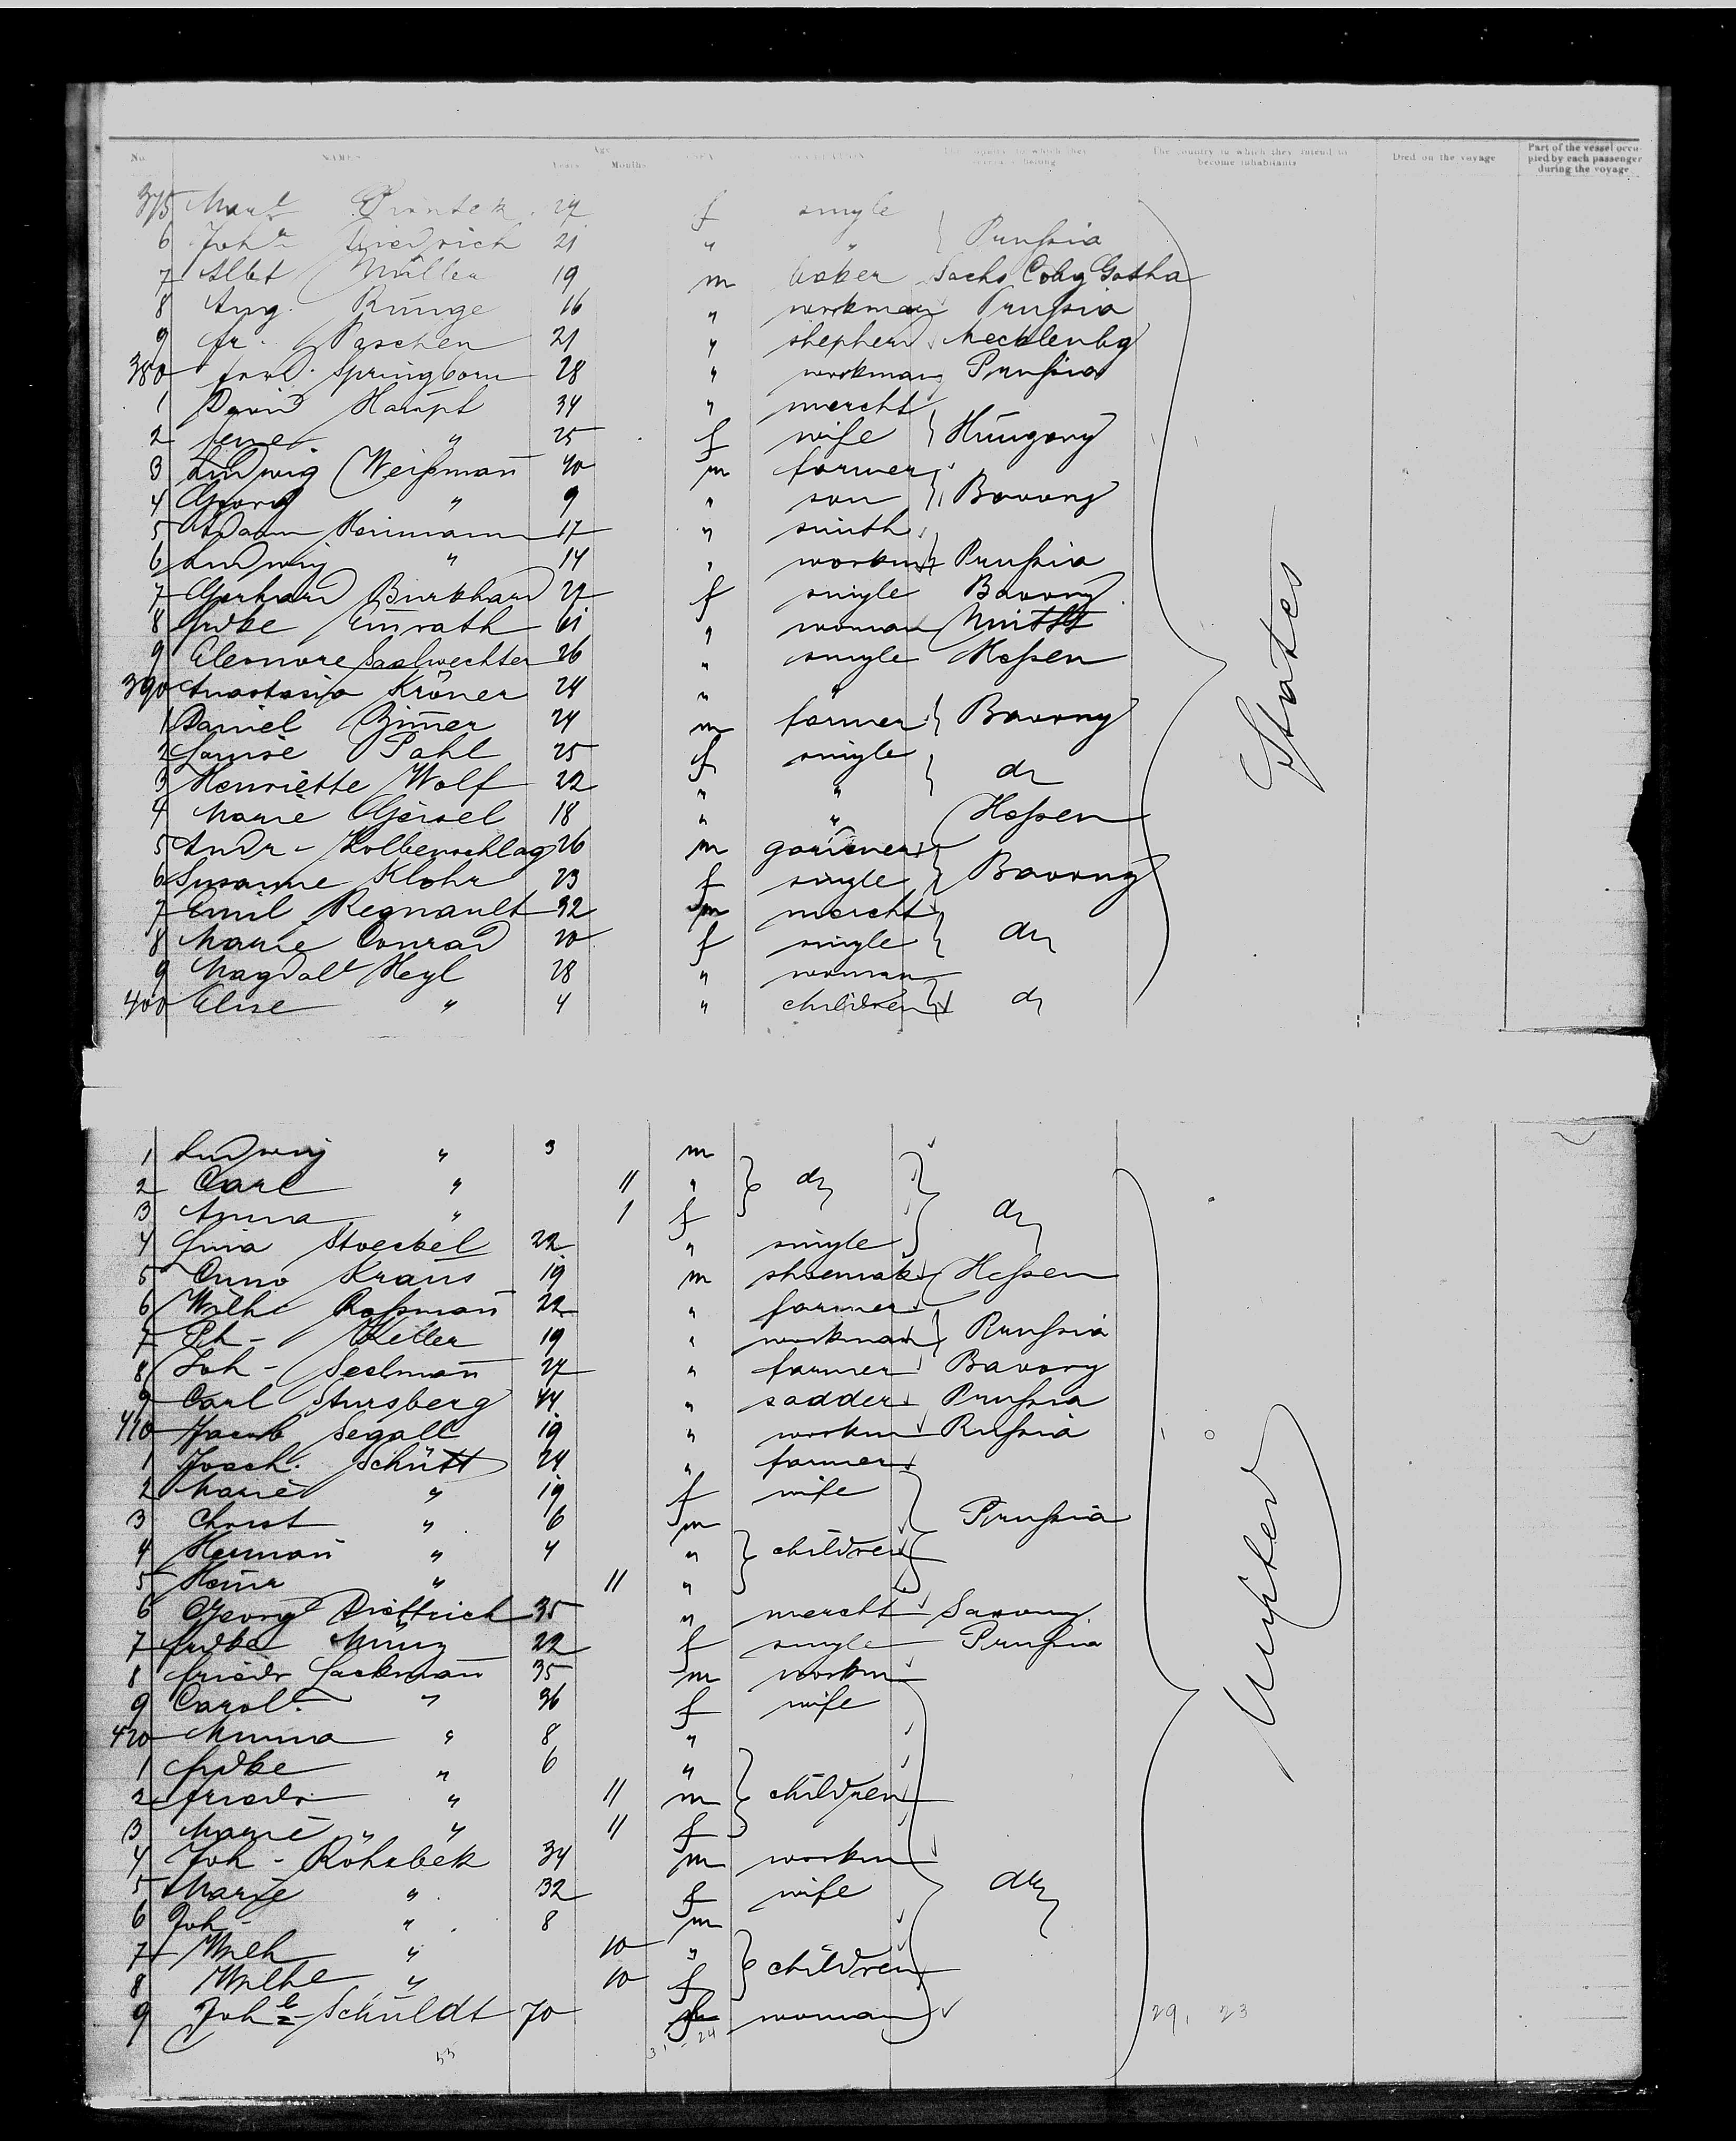 No. NAMES Age Years Months SEX OCCUPATION The country to which they severally belong The country in which they intend to become inhabitants Died on the voyage Part of the vessel occupied by each passenger during the voyage
375 27 f single
6 Diedrich 21 " " Prussia
7 Albt Müller 19 m baker Sachs Cobg Gotha
8 Aug. Runge 16 " workman Prussia
9 Fr. Paschen 21 " shepherd Mecklenbg
380 Ferd. Springborn 28 " workman Prussia
1 David Haupt 34 " mercht
2 " 25 f wife Hungary
3 Ludwig Weißmann 40 m farmer
4 Georg " 9 " son Bavary
5 Adam Heinmann 17 " smith
6 Ludwig " 14 " workm Prussia
7 Gerhard Burkhard 27 f single Bavary
8 Fridke Emrath 61 " woman
9 Eleonore Saalwechter 26 " single Hessen
390 Anastasia Kröner 24 " "
1 Daniel Zimer 24 m farmer Bavary
2 Louise Pahl 25 f single
3 Henriette Wolf 22 " " do
4 Marie Geisel 18 " " Hessen
5 Andr- Kolbenschlag 26 m gardener
6 Susanne Klohr 23 f single Bavary
7 Emil Regnault 32 m mercht
8 Marie Conrad 20 f single do
9 Magdale Heyl 28 " woman
400 Elise " 4 " children do
States
1 Ludwig " 3 m
2 Carl " 11 " do
3 Anna " 1 f do
4 Stoeckel 22 " single
5 Cuno Kraus 19 m shoemak Hessen
6 Wilh Roßmann 22 " farmer
7 Ph- Keller 19 " workman Prussia
8 Joh- Seelmann 27 " farmer Bavary
9 Carl Stursberg 44 " sadder Prussia
410 Jacob Segall 19 " workm Russia
1 Joach. Schütt 24 " farmer
2 Marie " 19 f wife
3 Christ " 6 m Prussia
4 Herman " 4 " children
5 Heinr " 11 "
6 Georg Diettrich 35 " mercht Saxony
7 Fridke Münz 22 f single Prussia
8 Friedr Lackmann 35 m workm
9 Carole " 36 f wife
420 Minna " 8 "
1 Fridke " 6 "
2 Friedr " 11 m children
3 Marie " " 11 f
4 Joh- Röhsbek 34 m workm
5 Marie " 32 f wife do
6 Joh- " 8 m
7 Wilh " 10 " children
8 Wilhe " 10 f
9 Johe Schuldt 70 f woman
United
29, 23
31 - 24
53